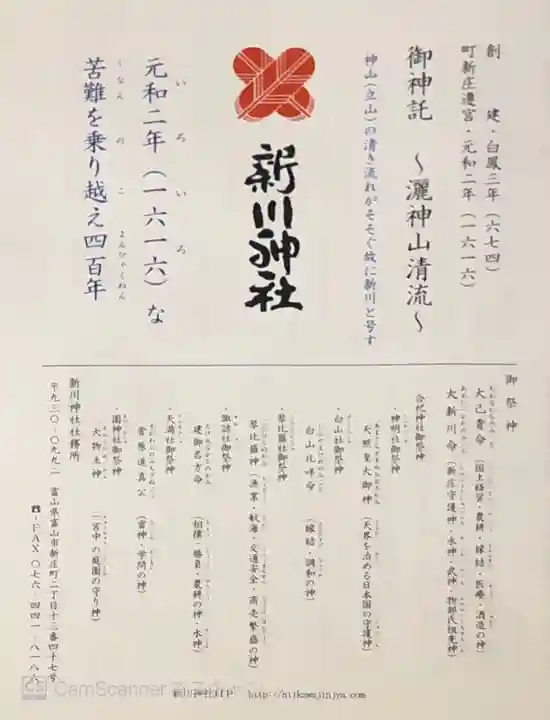 創　建・白鳳三年（六七四）
町新庄遷宮・元和二年（一六一六）
御神託　～灑神山清流～
神山（立山）の清き流れがそそぐ故に新川と号す
新川神社
元和二年（一六一六）な
いろいろ
苦難を乗り越え四百年
くなん　の　こ　よんひゃくねん
御祭神
大己貴命（国土経営・農耕・縁結・医療・酒造の神）
大新川命（新庄守護神・水神・武神・物部氏祖先神）
合祀神社御祭神
・神明社御祭神
天照皇大御神（天界を治める日本国の守護神）
・白山社御祭神
白山比咩命（縁結・調和の神）
・琴比羅社御祭神
琴比羅神（漁業・航海・交通安全・商売繁盛の神）
・諏訪社御祭神
建御名方命（相撲・勝負・農耕の神・水神）
・天満社御祭神
菅原道真公（雷神・学問の神）
・園神社御祭神
大物主神（宮中の庭園の守り神）
新川神社社務所
〒九三〇-〇九九二　富山県富山市新庄町二丁目十二番四十七号
☎・FAX〇七六-四四一-八一八六
CamScanner
新川神社HP　http://niikawajinjya.com